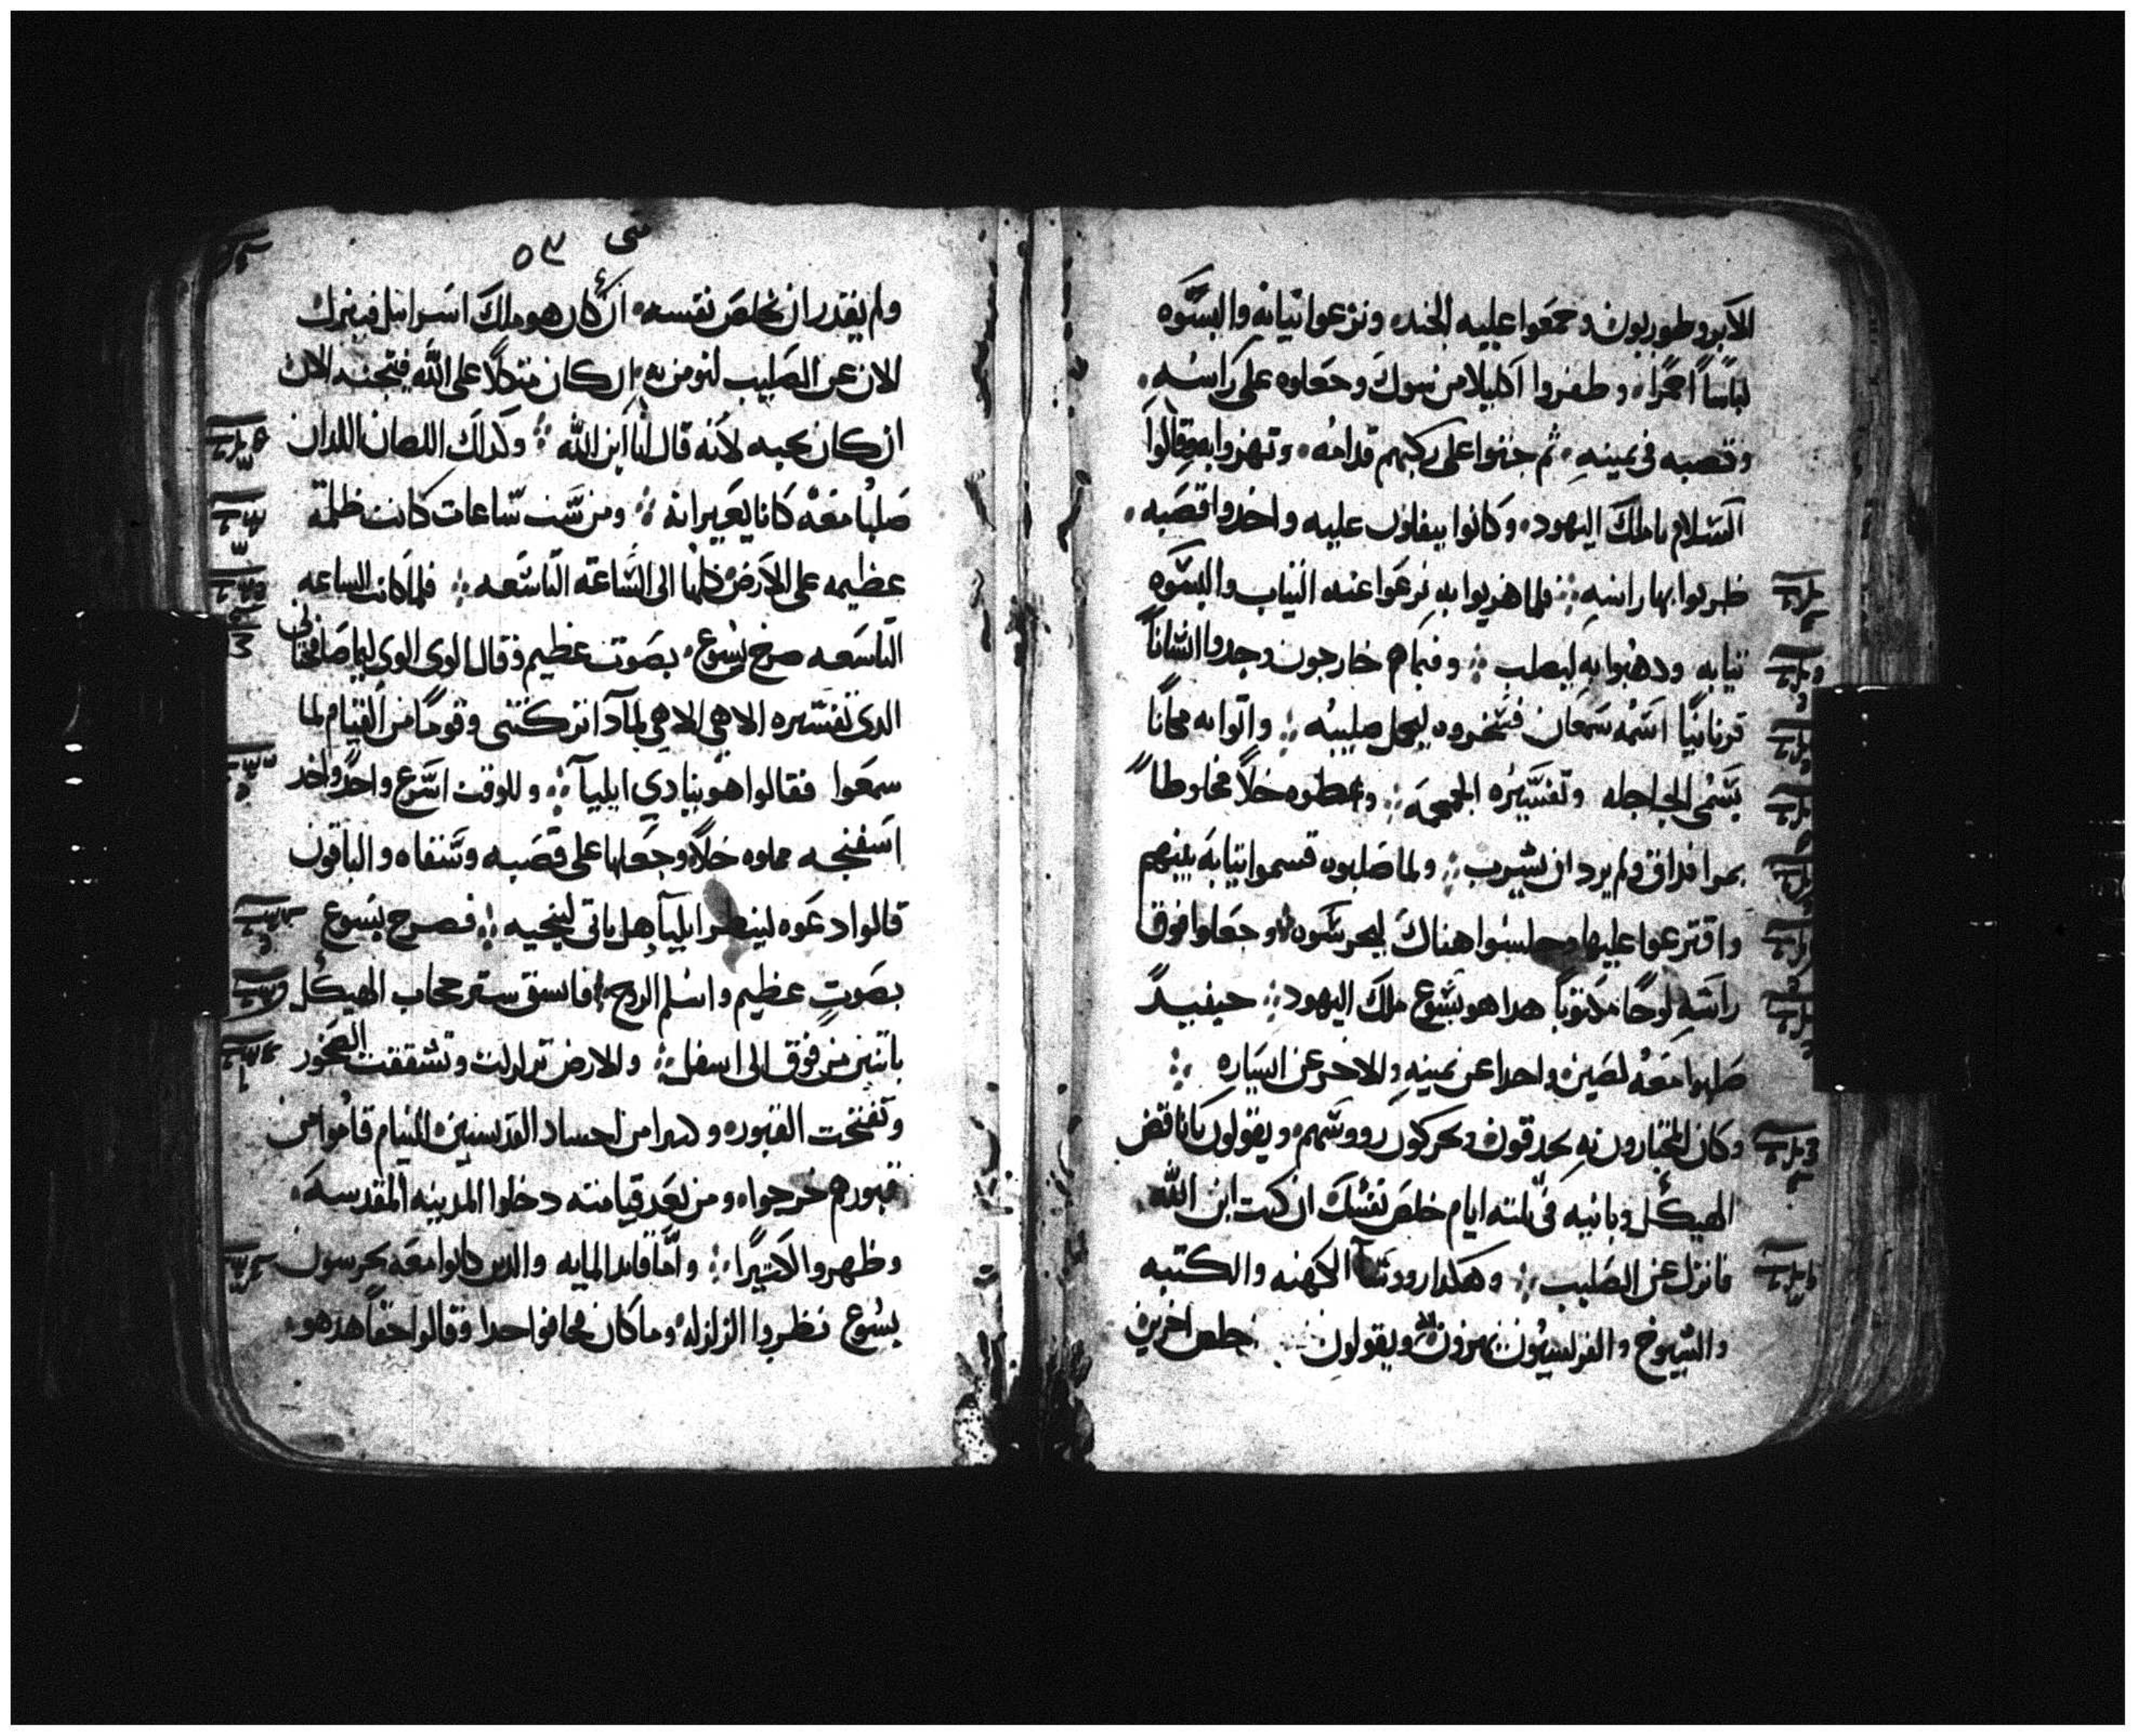 الابروطوريون وجمعوا عليه الجند، ونزعوا ثيابه والبسوه
لباسًا احمرًا، وظفروا اكليلا من شوك وجعلوه على راسه،
وقصبه في يمينه، ثم جثوا على ركبهم قدامه، وتهزوا به وقالوا
السلام يا ملك اليهود، وكانوا يبفلون عليه واخدوا قصبه،
ضربوا بها راسه ⁘ فلما هزيوا به نزعوا عنه الثياب والبسوه
ثيابه ودهبوا به ليصلب ⁘ وفيما هم خارجون وجدوا انسانًا
قرنانيًا اسمه سمعان فسخروه ليحمل صليبه ⁘ واتوا به مكانًا
يسمى الجاجله وتفسيره الجمجمه ⁘ واعطوه خلًا مخلوطًا
بمرا فداق ولم يرد ان يشرب ⁘ ولما صلبوه قسموا ثيابه بينهم
واقترعوا عليها وجلسوا هناك ليحرسوه ⁘ وجعلوا فوق
راسه لوحًا مكتوبًا هدا هو يسوع ملك اليهود ⁘ حينيدٍ
صلبوا معه لصين واحدا عن يمينه والاخر عن يساره ⁘
وكان المجتازون به يجدفون ويحركون رووسهم، ويقولون يا ناقض
الهيكل وبانيه في ثلثه ايام خلص نفسك ان كنت ابن الله
فانزل عن الصليب ⁘ وهكدا رووسآ الكهنه والكتبه
والشيوخ والفريسيون يهزون به ويقولون خلص اخرين
سى ٥٣
ولم يقدر ان يخلص نفسه، ان كان هو ملك اسرائيل فينزل
الان عن الصليب لنومن به، ان كان متكلًا على الله فينجيه الان
ان كان يحبه لانه قال انا ابن الله ⁘ وكدلك اللصان اللدان
صلبا معه كانا يعيرانه ⁘ ومن ست ساعات كانت ظلمة
عظيمه على الارض كلها الى الساعه التاسعه ⁘ فلما كانت الساعه
التاسعه صرخ يسوع، بصوت عظيم وقال الوى الوى ليما صافختانى
الدى تفسيره الاهي الاهي لمادا تركتنى وقومًا من القيام لما
سمعوا فقالوا هو ينادي ايليآ ⁘ وللوقت اسرع واحدٌ واخد
اسفنجه مملوه خلًا وجعلها على قصبه وسقاه والباقون
قالوا دعوه لينظر ايليآ هل ياتى لينجيه ⁘ فصرخ يسوع
بصوتٍ عظيم واسلم الروح ⁘ فانشق ستر حجاب الهيكل
باثنين من فوق الى اسفل ⁘ والارض تزلزلت وتشققت الصخور
وتفتحت القبور، وكثيرا من اجساد القديسين النيام قاموا من
قبورهم خرجوا، ومن بعد قيامته دخلوا المدينه المقدسه،
وظهروا لاكثيرًا ⁘ وامّا قايد المايه والدين كانوا معه يحرسون
يسوع نظروا الزلزله وما كان فخافوا جدا وقالوا حقًا هدا هو